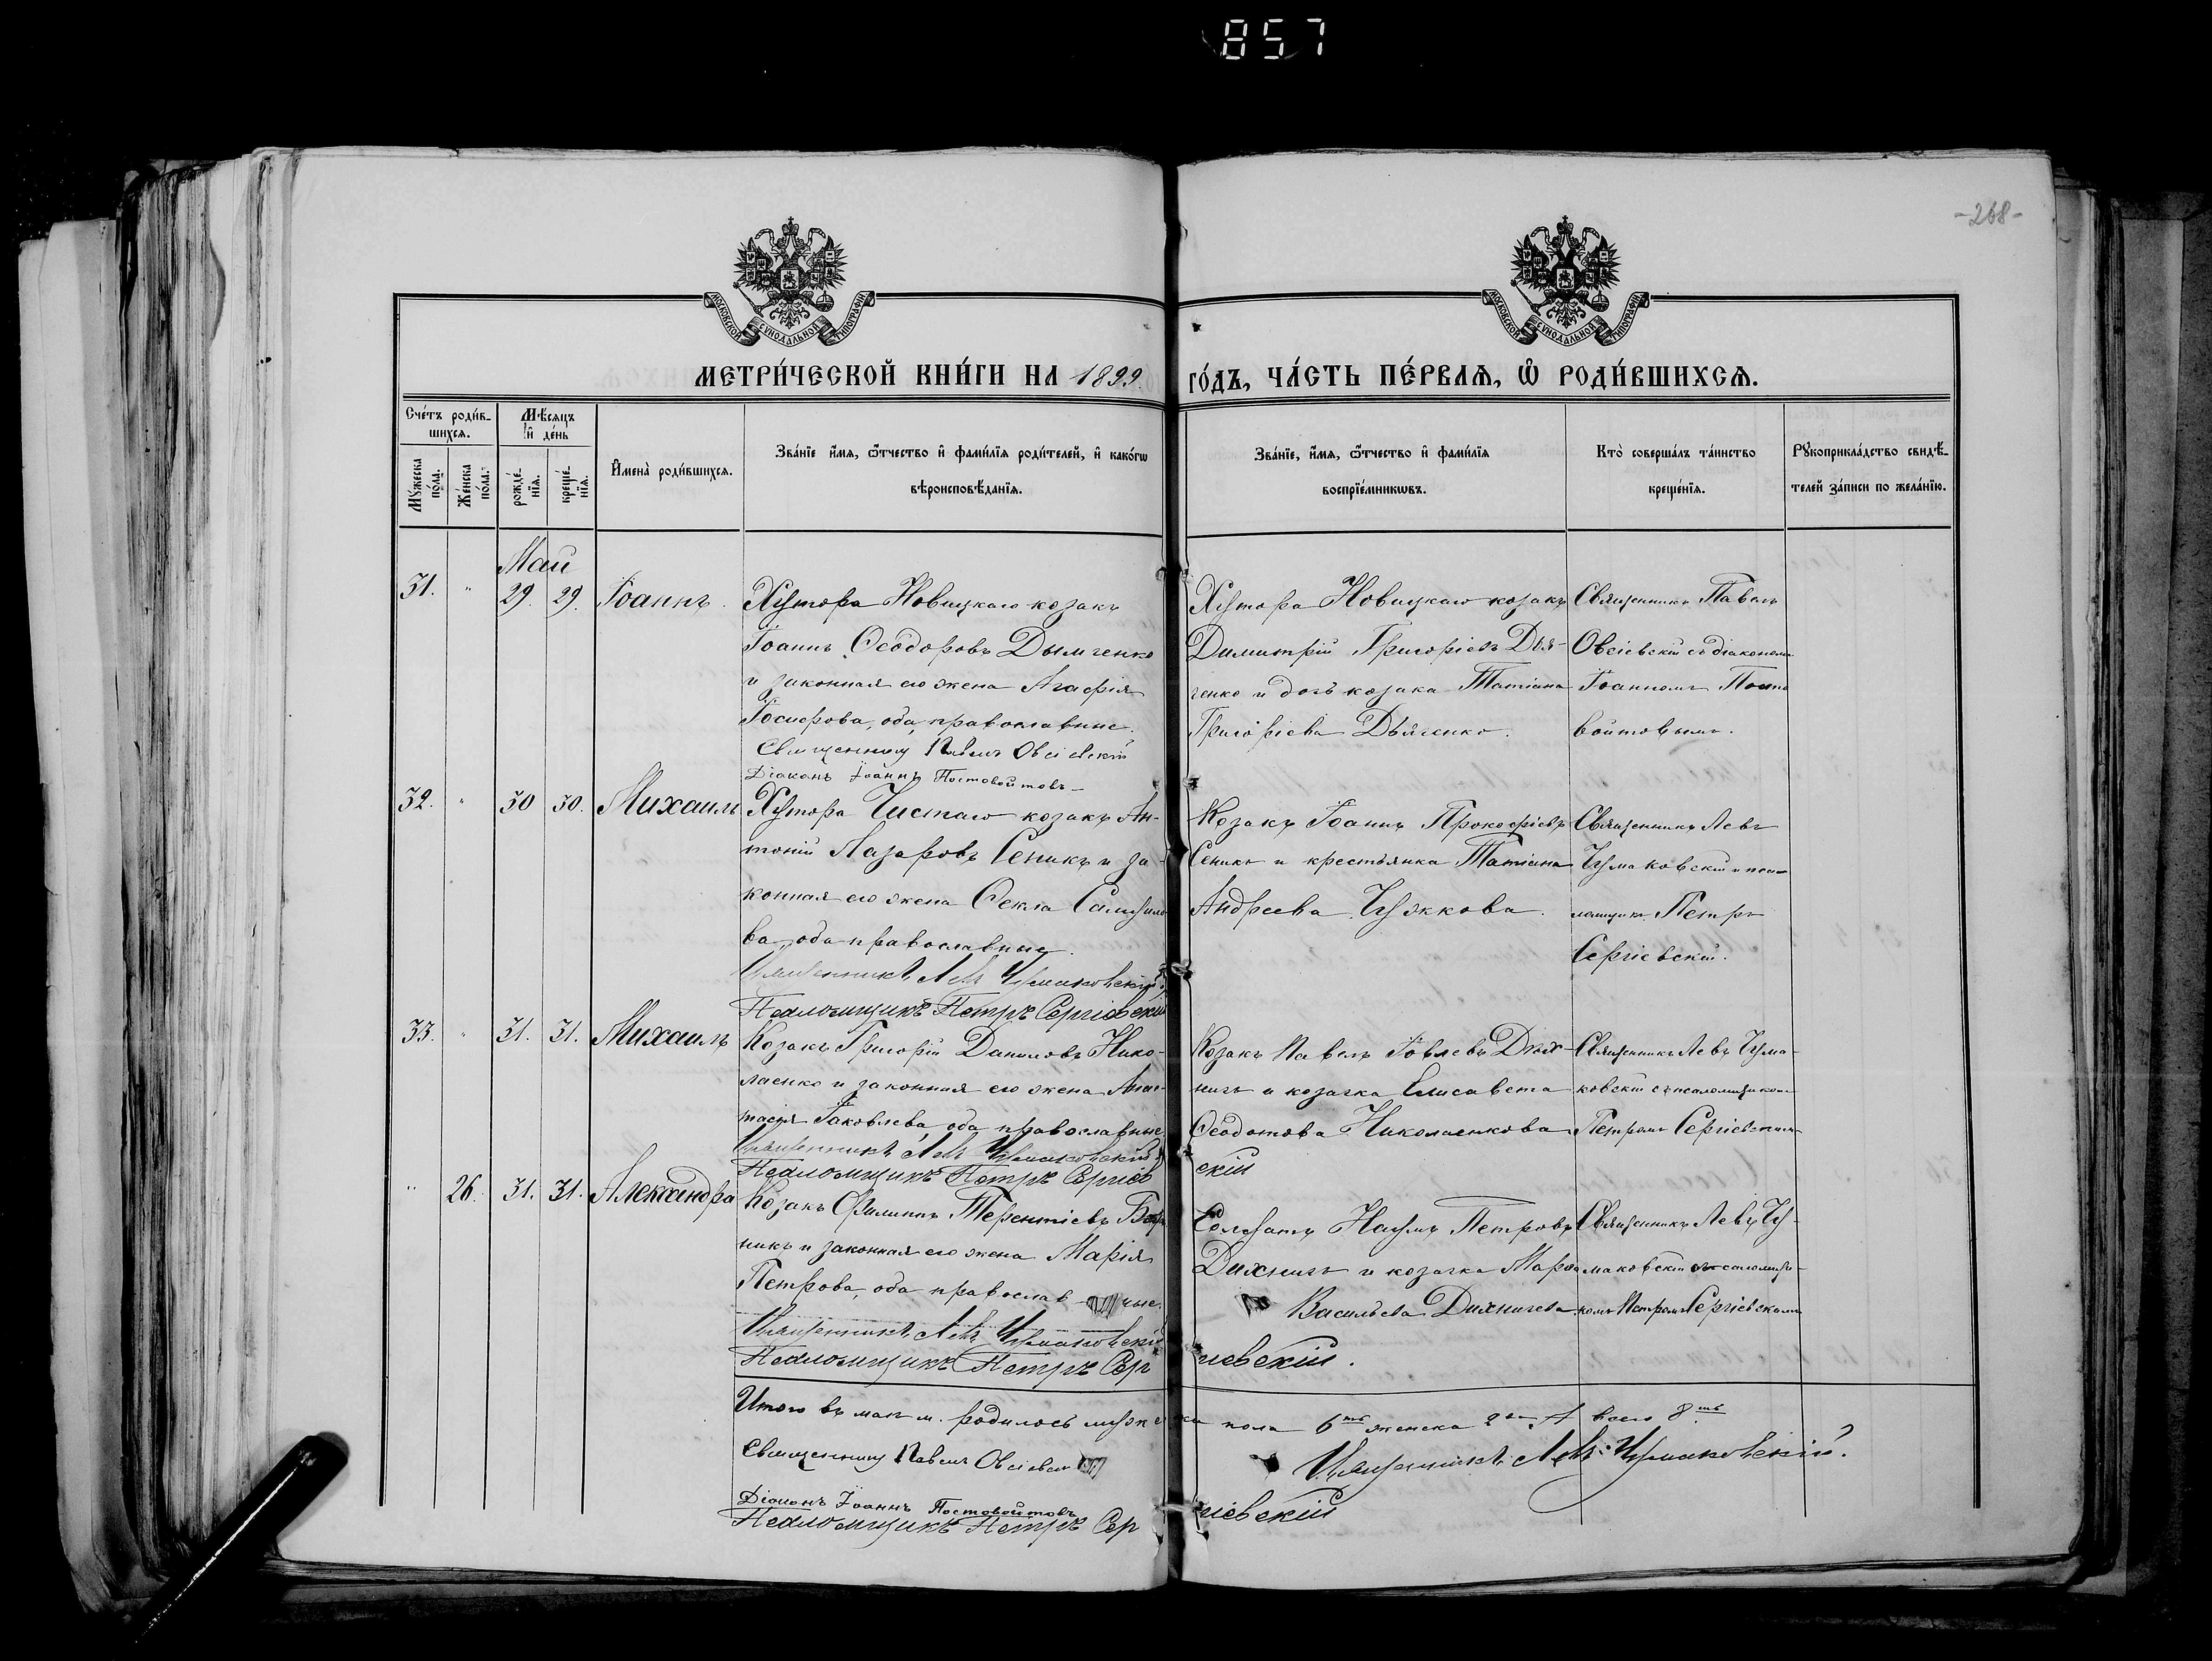 857
-268-
МОСКОВСКОЙ СѴНОДАЛЬНОЙ ТИПОГРАФІИ
МОСКОВСКОЙ СѴНОДАЛЬНОЙ ТИПОГРАФІИ
МЕТРИ́ЧЕСКОЙ КНИ́ГИ НА 1899 ГО́ДЪ, ЧА́СТЬ ПЕ́РВАѦ, Ѡ РОДИ́ВШИХСѦ.
Сче́тъ роди́в-
шихсѧ.
Мѣ́сѧцъ
и҆ де́нь
Мꙋ́жеска
по́ла.
Же́нска
по́ла.
рожде́-
нїѧ.
креще́-
нїѧ.
И҆мена̀ роди́вшихсѧ.
Зва́нїе и҆́мѧ, ѻ҆́тчество и҆ фами́лїѧ роди́телей, и҆ како́гѡ
вѣроисповѣ́данїѧ.
Зва́нїе, и҆́мѧ, ѻ҆́тчество и҆ фами́лїѧ
воспрїе́мникѡвъ.
Кто̀ соверша́лъ та́инство
креще́нїѧ.
Рꙋкоприкла́дство свидѣ́-
телей за́писи по жела́нїю.
Май
31. " 29. 29. Іоаннъ.
Хутора Новицкаго козакъ
Іоаннъ Ѳеодоровъ Дымченко
и законная его жена Агафія
Іосифова, оба православные.
Священникъ Павелъ Овсіевскій
Діаконъ Іоаннъ Постовойтовъ
Хутора Новицкаго козакъ
Димитрій Григоріевъ Дья-
ченко и дочь козака Татіана
Григоріева Дьяченко.
Священникъ Павелъ
Овсіевскій съ діакономъ
Іоанномъ Посто
войтовымъ.
32. " 30 30. Михаилъ
Хутора Чистаго козакъ Ан-
тоній Лазаровъ Сеникъ и за-
конная его жена Ѳекла Самуило
ва, оба православные.
Священникъ Левъ Чумаковскій
Псаломщикъ Петръ Сергіевскій
Козакъ Іоаннъ Прокофіевъ
Сеникъ и крестьянка Татіана
Андреева Чужкова.
Священникъ Левъ
Чумаковскій и пса-
ломщикъ Петръ
Сергіевскій.
33. " 31. 31. Михаилъ
Козакъ Григорій Даниловъ Нико-
лаенко и законная его жена Анас-
тасія Іаковлева, оба православные
Священникъ Левъ Чумаковскій
Псаломщикъ Петръ Сергіев
скій
Козакъ Павелъ Іовлевъ Дих-
ничъ и козачка Елисавета
Ѳеодотова Николаенкова
Священникъ Левъ Чума-
ковскій съ псаломщикомъ
Петромъ Сергіевскимъ
" 26. 31. 31. Александра
Козакъ Филиппъ Терентіевъ
никъ и законная его жена Марія
Петрова, оба православ ные.
Священникъ Левъ Чумаковскій
Псаломщикъ Петръ Сер гіевскій.
Солдатъ Наумъ Петровъ
Дихничъ и козачка Марѳа
Васильева Дихничева
Священникъ Левъ Чу-
маковскій съ псаломщи-
комъ Петромъ Сергіевскимъ
Итого въ маѣ м. родилось мужеска пола 6ть женска 2ѣ А всего 8мь
Священникъ Павелъ Овсіевскій
Священникъ Левъ Чумаковскій.
Діаконъ Іоаннъ Постовойтовъ
Псаломщикъ Петръ Сергіевскій